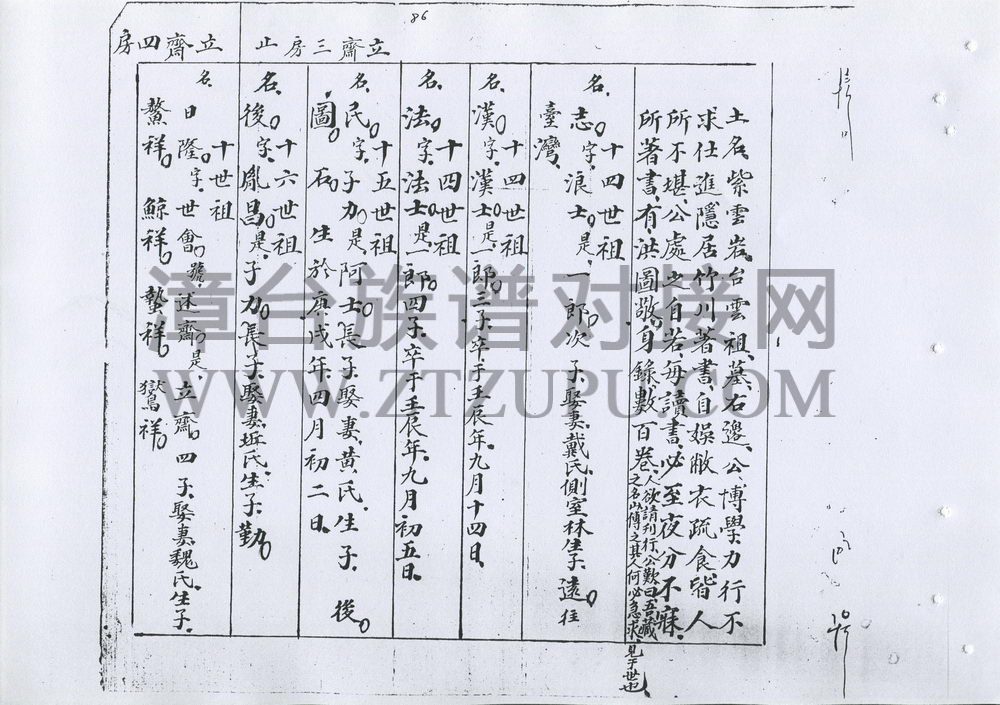 86
立齋三房止
立齋四房
土名紫雲岩台雲祖墓右邊公博學力行不
求仕進隱居竹川著書自娛敝衣疏食皆人
所不堪公處之自若每讀書必至夜分不寐
所著書有洪圖敬身錄數百卷人欲請刊行公歎曰吾藏
之名山傳之其人何必急求見于世也
十四世祖
名志字浪士是一郎次子娶妻戴氏側室林生子遠往
臺灣
十四世祖
名漢字漢士是一郎三子卒于壬辰年九月十四日
十四世祖
名法字法士是一郎四子卒于壬辰年九月初五日
十五世祖
名民字子力是阿士長子娶妻黃氏生子後
圖石生於庚戌年四月初二日
十六世祖
名後字胤昌是子力長子娶妻坵氏生子勤
十世祖
名日隆字世會號述齋是立齋四子娶妻魏氏生子
鰲祥鯨祥蟄祥嶽祥
漳台族谱对接网
WWW.ZTZUPU.COM